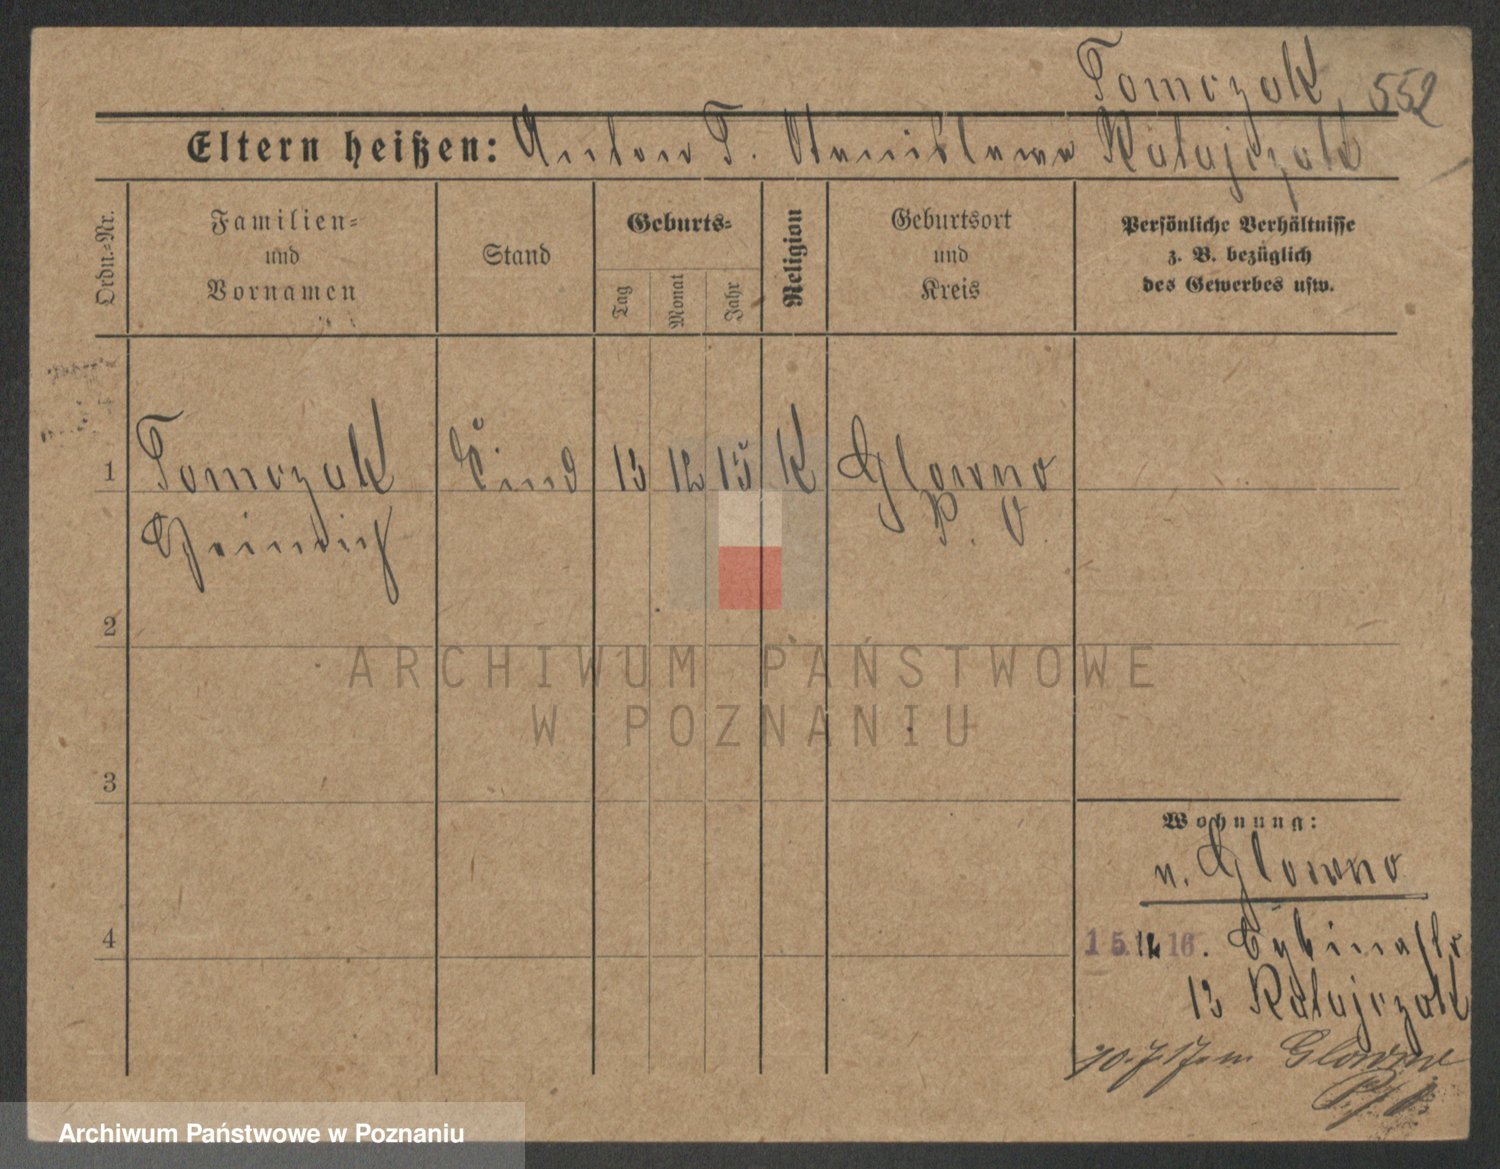 Tomczak 552
Eltern heißen: Anton T. Stanislawa Ratajczak
Ordn.-Nr.
Familien-
und
Vornamen
Stand
Geburts-
Tag
Monat
Jahr
Religion
Geburtsort
und
Kreis
Persönliche Verhältnisse
z. B. bezüglich
des Gewerbes usw.
1 Tomczak Kind 13 12 15 K Glowno
Heinrich P. O.
2
3
4
Wohnung:
v. Glowno
15.12.16. Cybinastr
13 Ratajczak
Glowno
ARCHIWUM PAŃSTWOWE
W POZNANIU
Archiwum Państwowe w Poznaniu